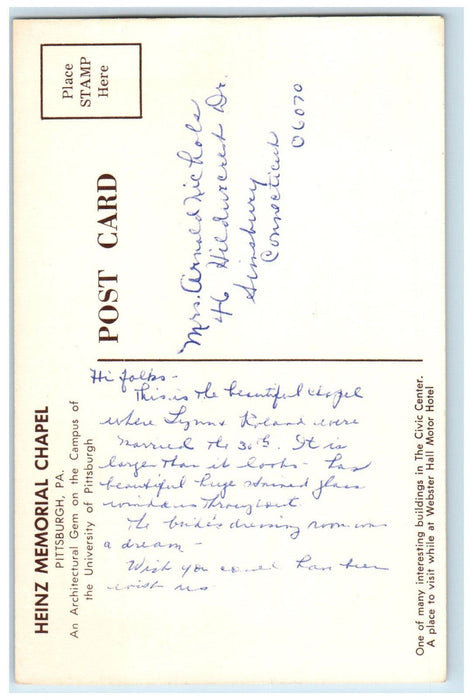 HEINZ MEMORIAL CHAPEL
PITTSBURGH, PA.
An Architectural Gem on the Campus of
the University of Pittsburgh
Hi folks -
This is the beautiful chapel
where Lynn & Roland were
married the 30th. It is
larger than it looks - has
beautiful huge stained glass
windows throughout.
The bride's dressing room was
a dream -
Wish you could have been
with us
One of many interesting buildings in The Civic Center.
A place to visit while at Webster Hall Motor Hotel
POST CARD
Place
STAMP
Here
Mrs. Arnold Nichols
46 Hildurcrest Dr.
Simsbury
Connecticut
06070